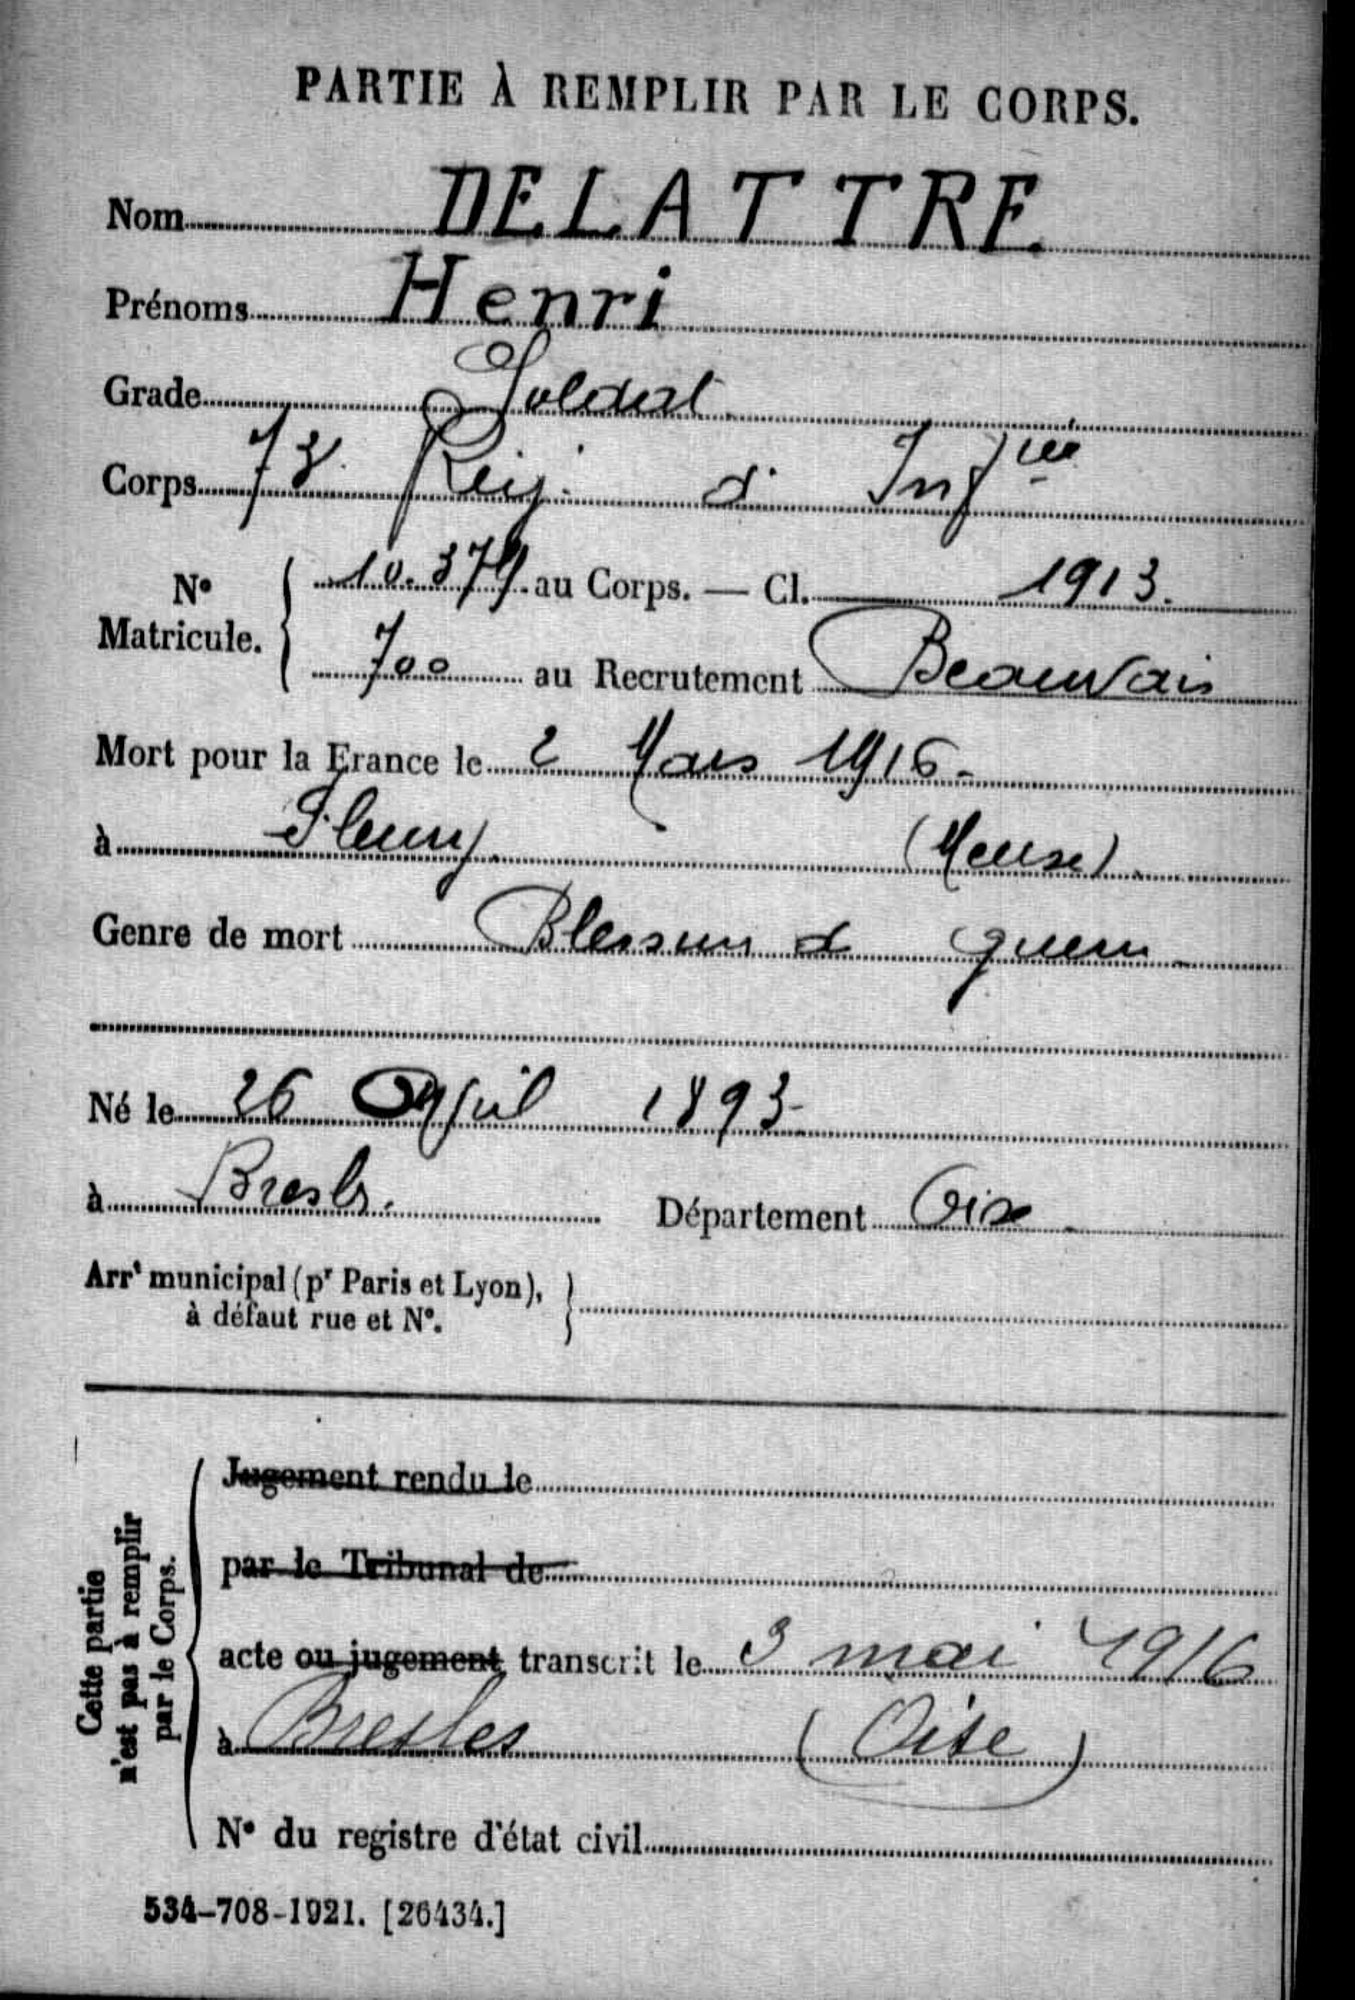 PARTIE À REMPLIR PAR LE CORPS.
Nom DELATTRE
Prénoms Henri
Grade Soldat
Corps 73 Reg. d' Inf^rie
N° Matricule. 10.379 au Corps. — Cl. 1913.
700 au Recrutement Beauvais
Mort pour la France le 2 Mars 1916.
à Fleury (Meuse).
Genre de mort Blessures de guerre
Né le 26 Avril 1893
à Bresles. Département Oise
Arr^t municipal (p^r Paris et Lyon),
à défaut rue et N°.
Cette partie
n'est pas à remplir
par le Corps.
Jugement rendu le
par le Tribunal de
acte ou jugement transcrit le 3 mai 1916
à Bresles (Oise)
N° du registre d'état civil
534-708-1921. [26434.]